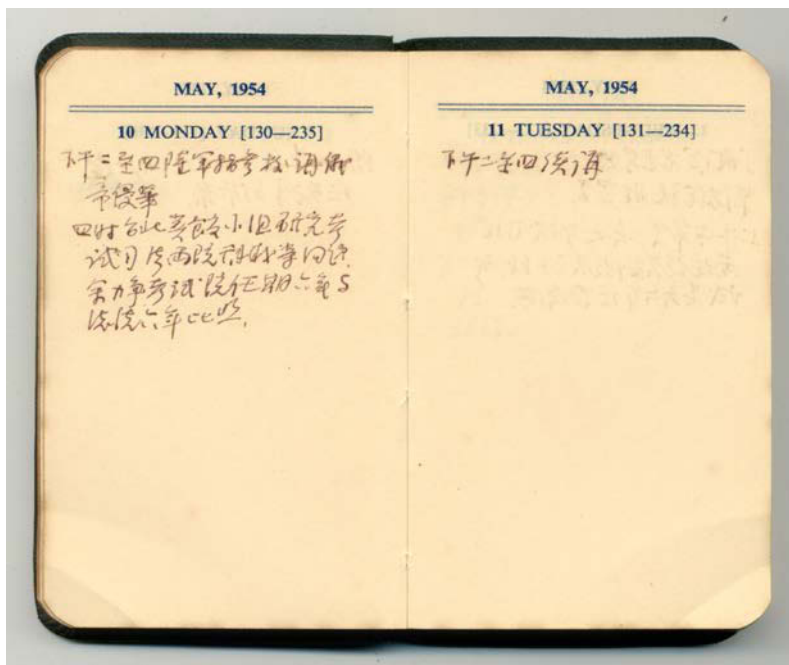 MAY, 1954
10 MONDAY [130—235]
下午二至四陸軍指參校講俄
帝侵華
四时台北賓館小组研究考
试司法兩院
余力爭考試院任期六年与
法院六年比照.
MAY, 1954
11 TUESDAY [131—234]
下午二至四續講